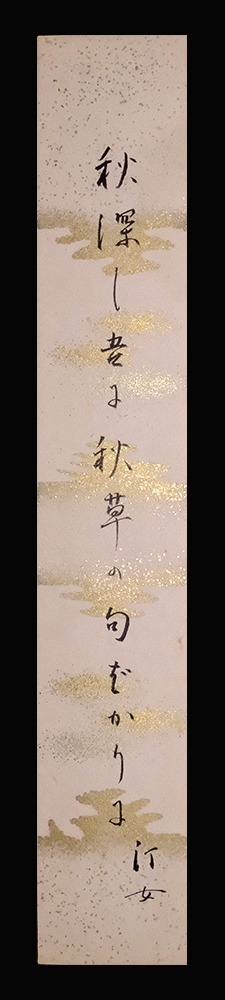 秋深し吾に秋草の句ばかりに
汀女